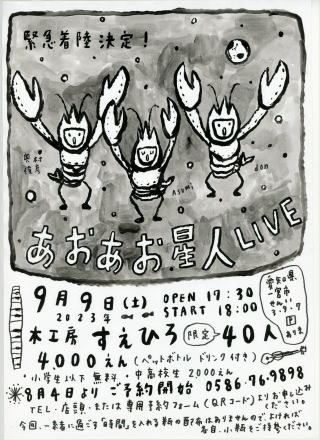 緊急着陸決定！
Asami
don
あおあお星人LIVE
9月9日(土)
2023年
OPEN 17:30
START 18:00
愛知県
一宮市
せんい
3.9.7
P
あります
木工房 すえひろ 限定 40人
4,000えん (ペットボトル ドリンク付き)
・小学生以下 無料 ・中高校生 2000えん
8月4日より ご予約開始 0586-76-9898
TEL・店頭・または 専用予約フォーム (QRコード) よりお申し込み
ください。
今回、一緒に過ごす「時間」を入れる瓶の配布はありませんので、よければ
各自、小瓶をご持参ください。